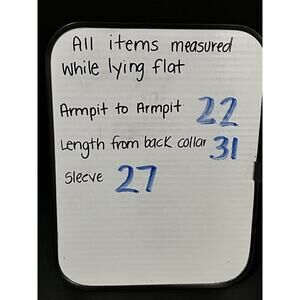 All items measured
while lying flat
Armpit to Armpit 22
Length from back collar 31
Sleeve 27